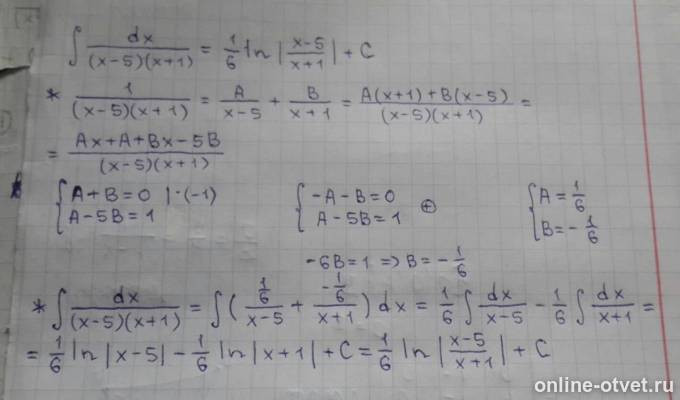 ∫ dx/((x-5)(x+1)) = 1/6 ln |(x-5)/(x+1)| + C
* 1/((x-5)(x+1)) = A/(x-5) + B/(x+1) = (A(x+1)+B(x-5))/((x-5)(x+1)) =
= (Ax+A+Bx-5B)/((x-5)(x+1))
{ A+B=0 |·(-1) { -A-B=0 ⊕ { A=1/6
A-5B=1 A-5B=1 B=-1/6
-6B=1 => B=-1/6
* ∫ dx/((x-5)(x+1)) = ∫ ( (1/6)/(x-5) + (-1/6)/(x+1) ) dx = 1/6 ∫ dx/(x-5) - 1/6 ∫ dx/(x+1) =
= 1/6 ln |x-5| - 1/6 ln |x+1| + C = 1/6 ln |(x-5)/(x+1)| + C
online-otvet.ru